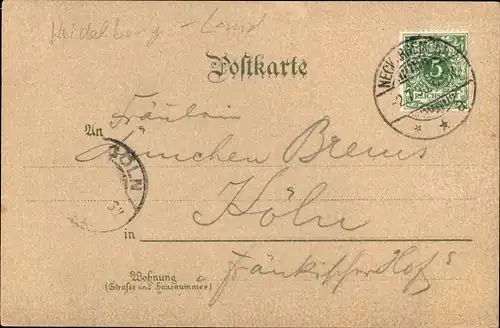 Heidelberg - Land
Postkarte
NECKARGEMÜND
5
Fräulein
An Ännchen Brems
CÖLN
Köln
in
Wohnung
(Straße und Hausnummer)
Fränkischer Hof